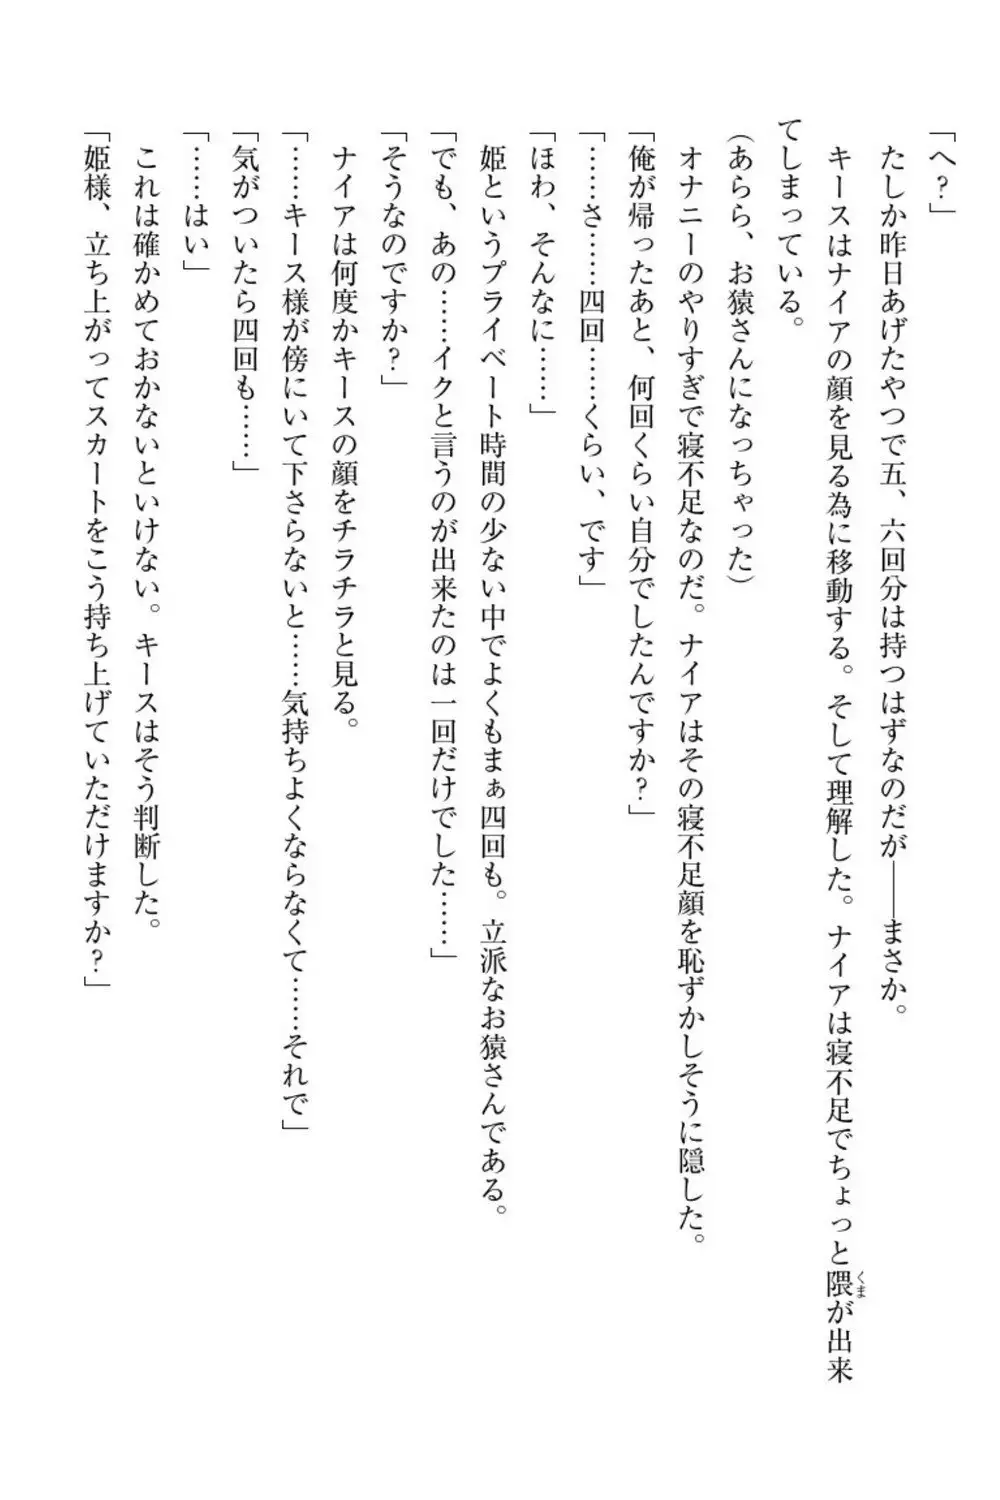 「へ？」
たしか昨日あげたやつで五、六回分は持つはずなのだが――まさか。
キースはナイアの顔を見る為に移動する。そして理解した。ナイアは寝不足でちょっと隈が出来
くま
てしまっている。
（あらら、お猿さんになっちゃった）
オナニーのやりすぎで寝不足なのだ。ナイアはその寝不足顔を恥ずかしそうに隠した。
「俺が帰ったあと、何回くらい自分でしたんですか？」
「……さ……四回……くらい、です」
「ほわ、そんなに……」
姫というプライベート時間の少ない中でよくもまぁ四回も。立派なお猿さんである。
「でも、あの……イクと言うのが出来たのは一回だけでした……」
「そうなのですか？」
ナイアは何度かキースの顔をチラチラと見る。
「……キース様が傍にいて下さらないと……気持ちよくならなくて……それで」
「気がついたら四回も……」
「……はい」
これは確かめておかないといけない。キースはそう判断した。
「姫様、立ち上がってスカートをこう持ち上げていただけますか？」